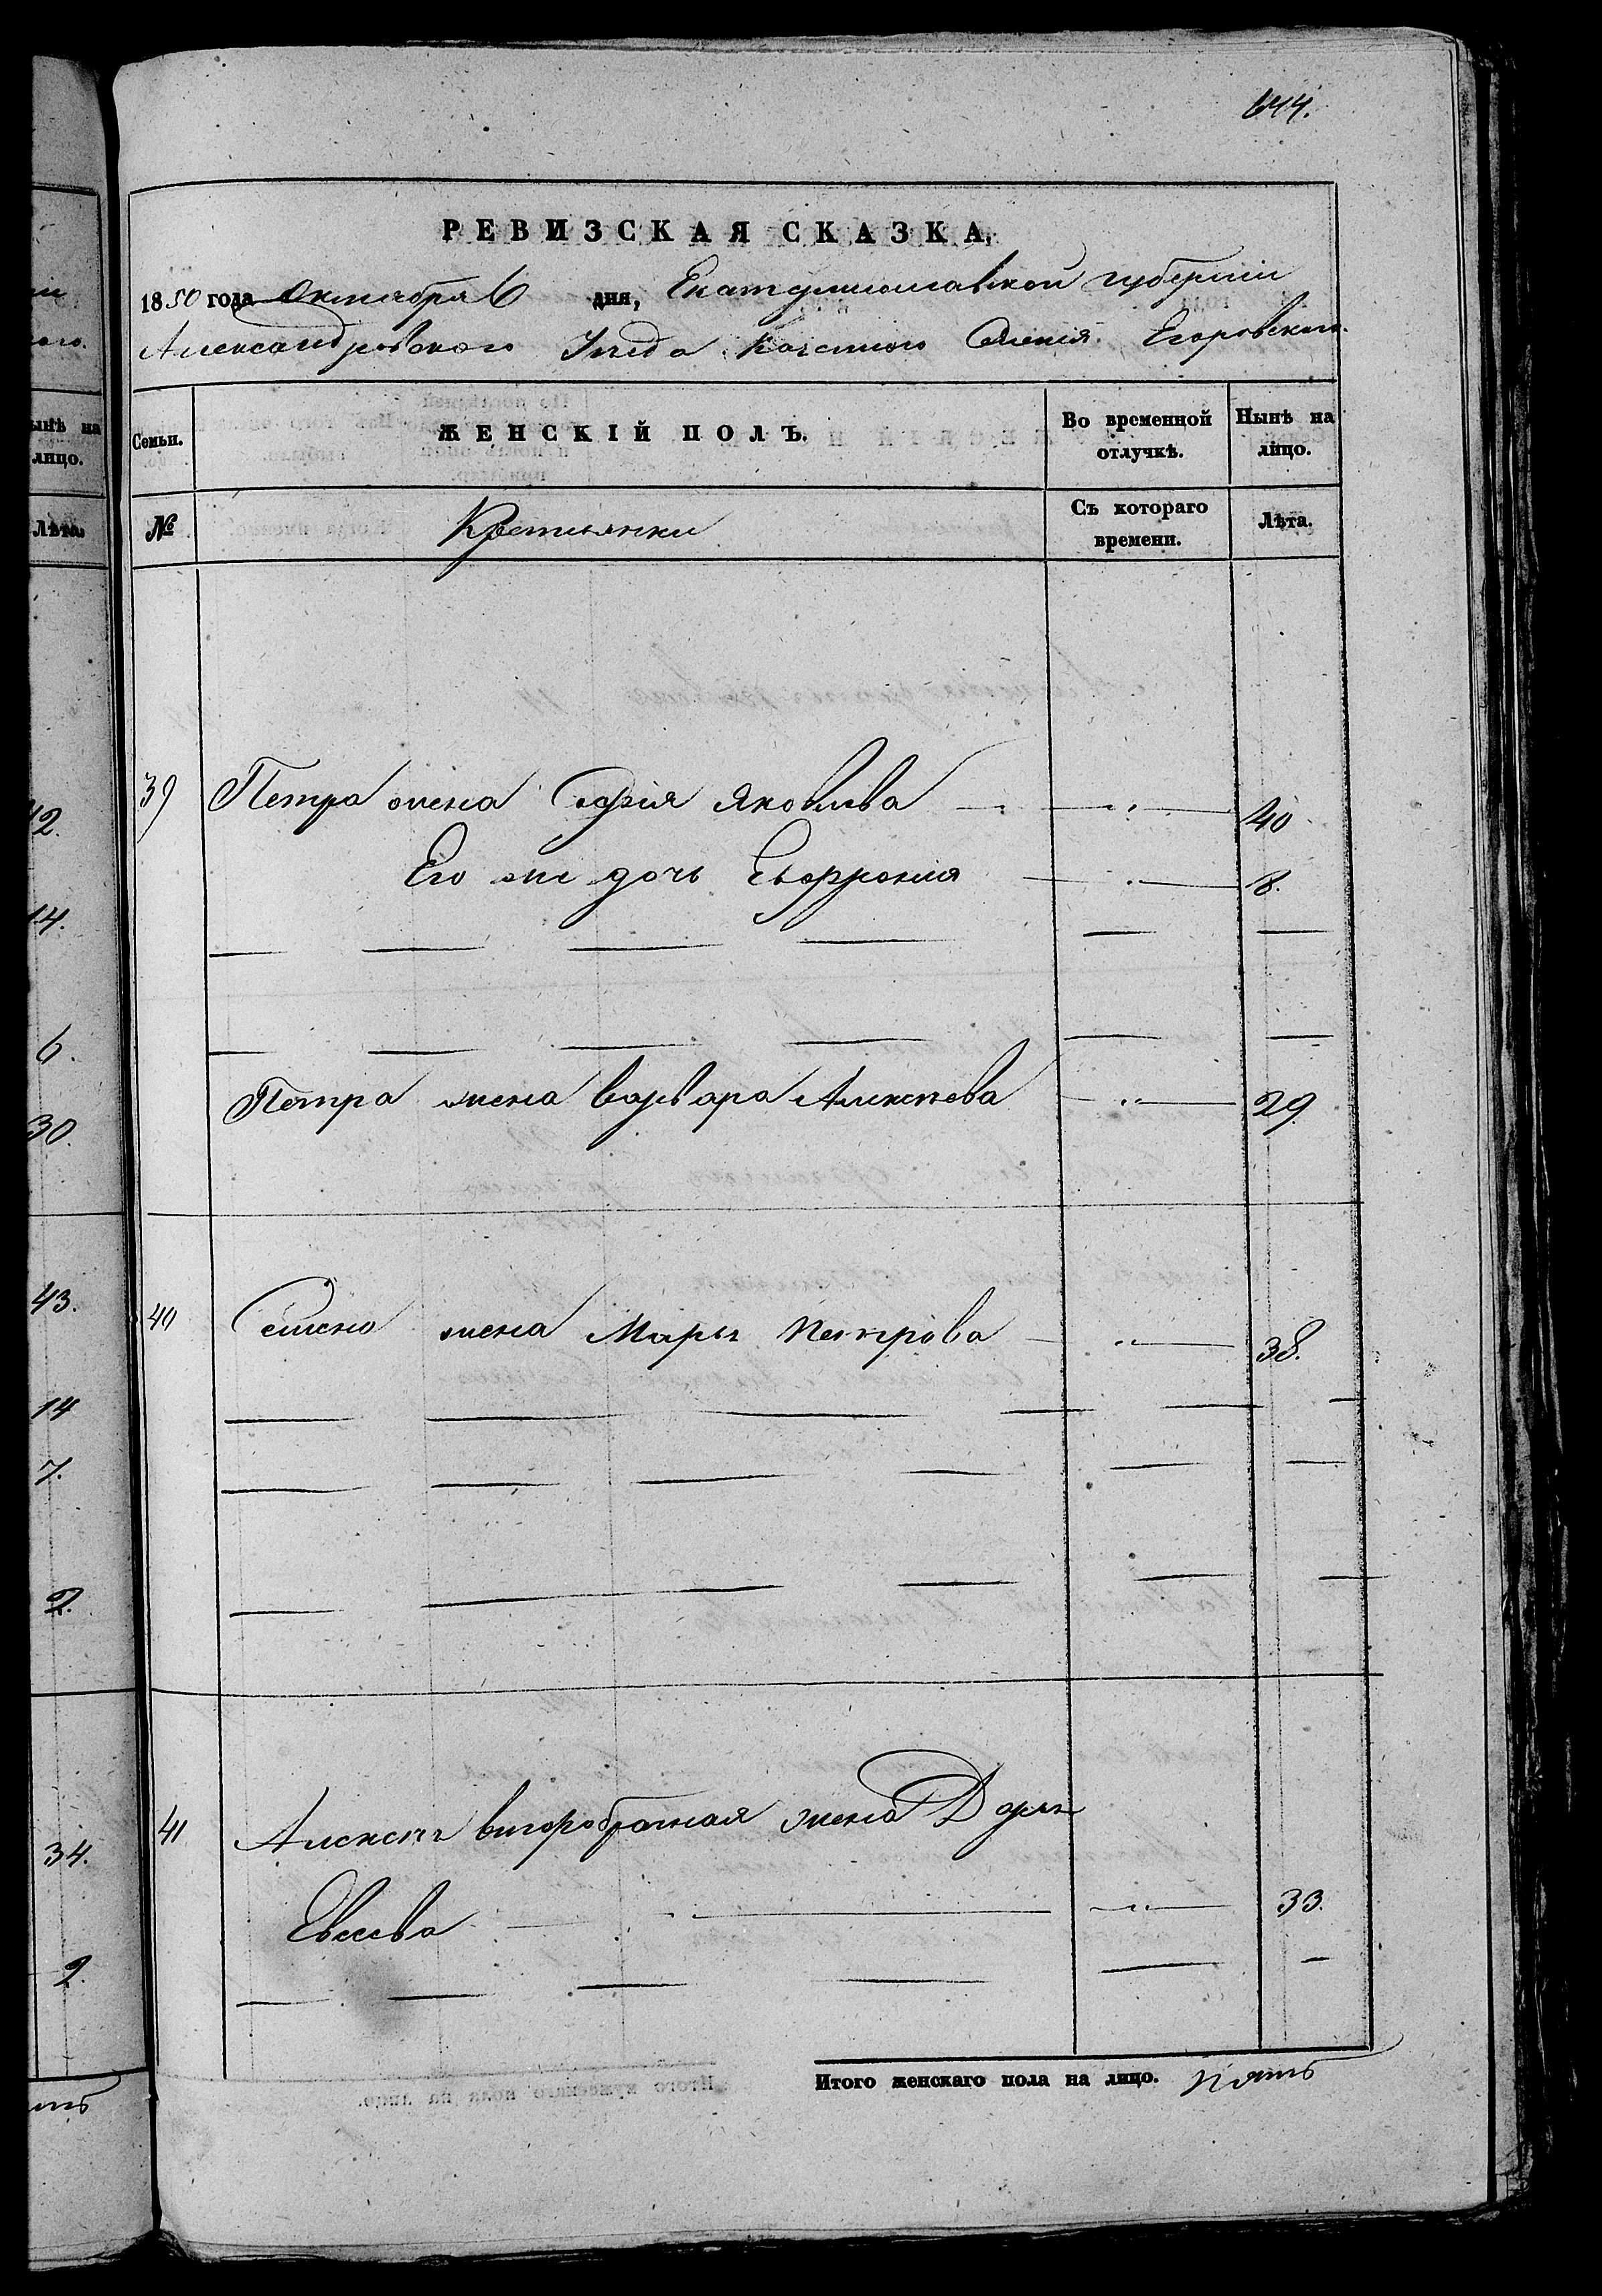 644.
РЕВИЗСКАЯ СКАЗКА,
1850 года Октября 6 дня, Екатеринославской губернии
Александровского Уезда Казенного Селения Егоровского.
Семьи. ЖЕНСКІЙ ПОЛЪ. Во временной отлучкѣ. Нынѣ на лицо.
№ Крестьянки Съ котораго времени. Лѣта.
39 Петра жена Софія Яковлева — „ — 40
Его же дочь Евфросинія — „ — 8.
Петра жена Варвара Алексѣева — „ — 29
40 Семена жена Марья Петрова — „ — 38.
41 Алексѣя второбрачная жена Дарья
Евсеева — „ — 33.
Итого женскаго пола на лицо. пять
ынѣ на
лицо.
Лѣта.
12.
14.
6.
30.
43.
14
7.
2.
34.
2.